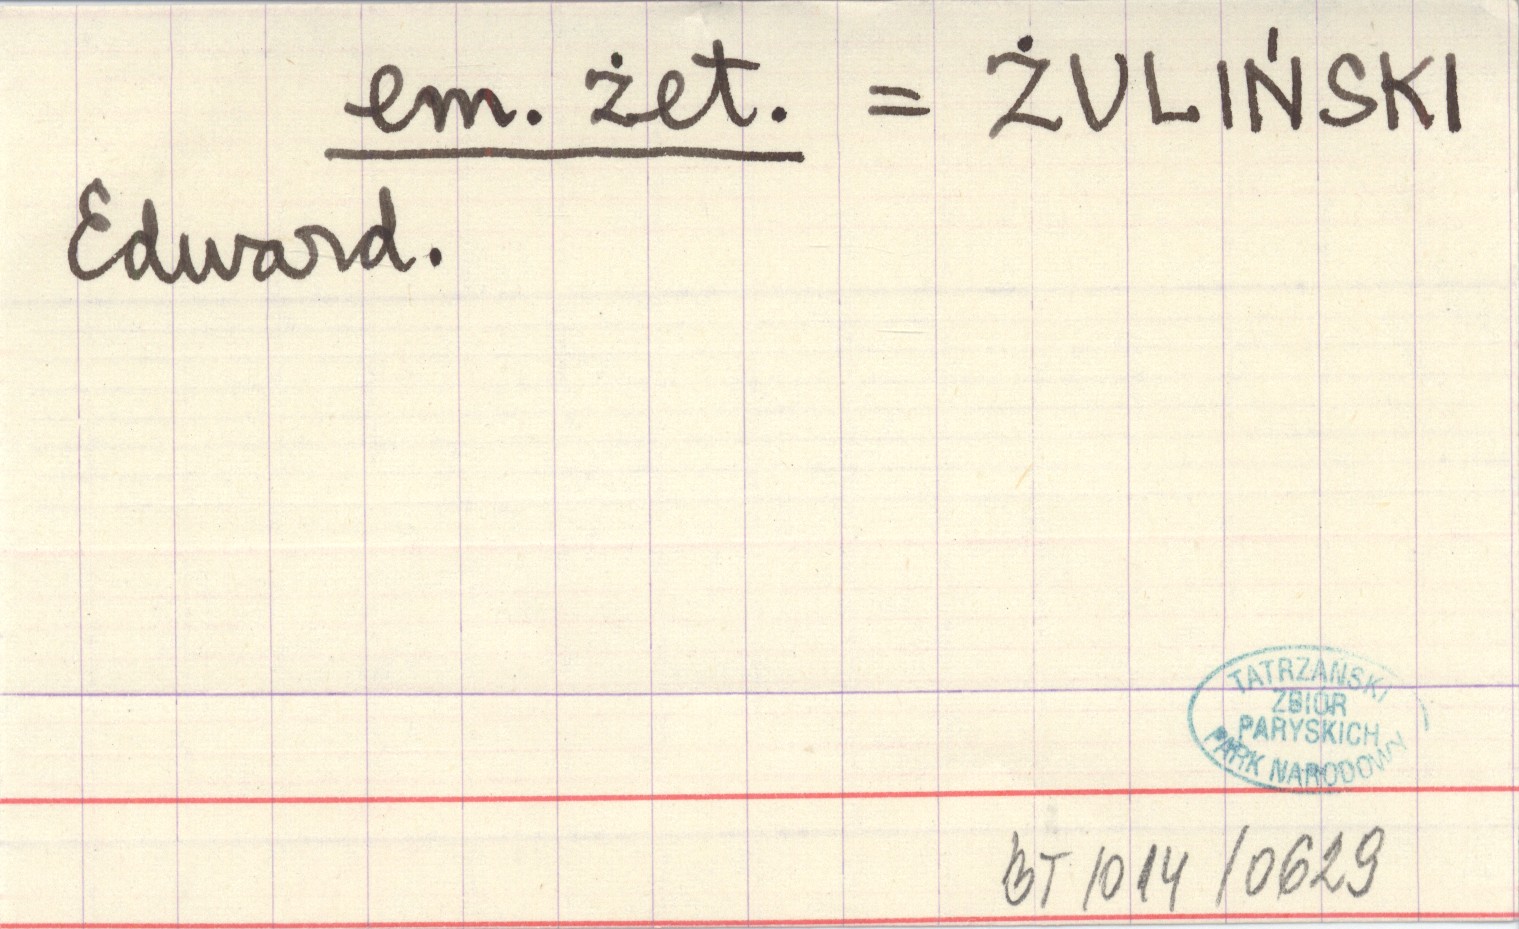 em. żet. = ŻULIŃSKI
Edward.
TATRZAŃSKI
ZBIÓR
PARYSKICH
PARK NARODOWY
BT/014/0629